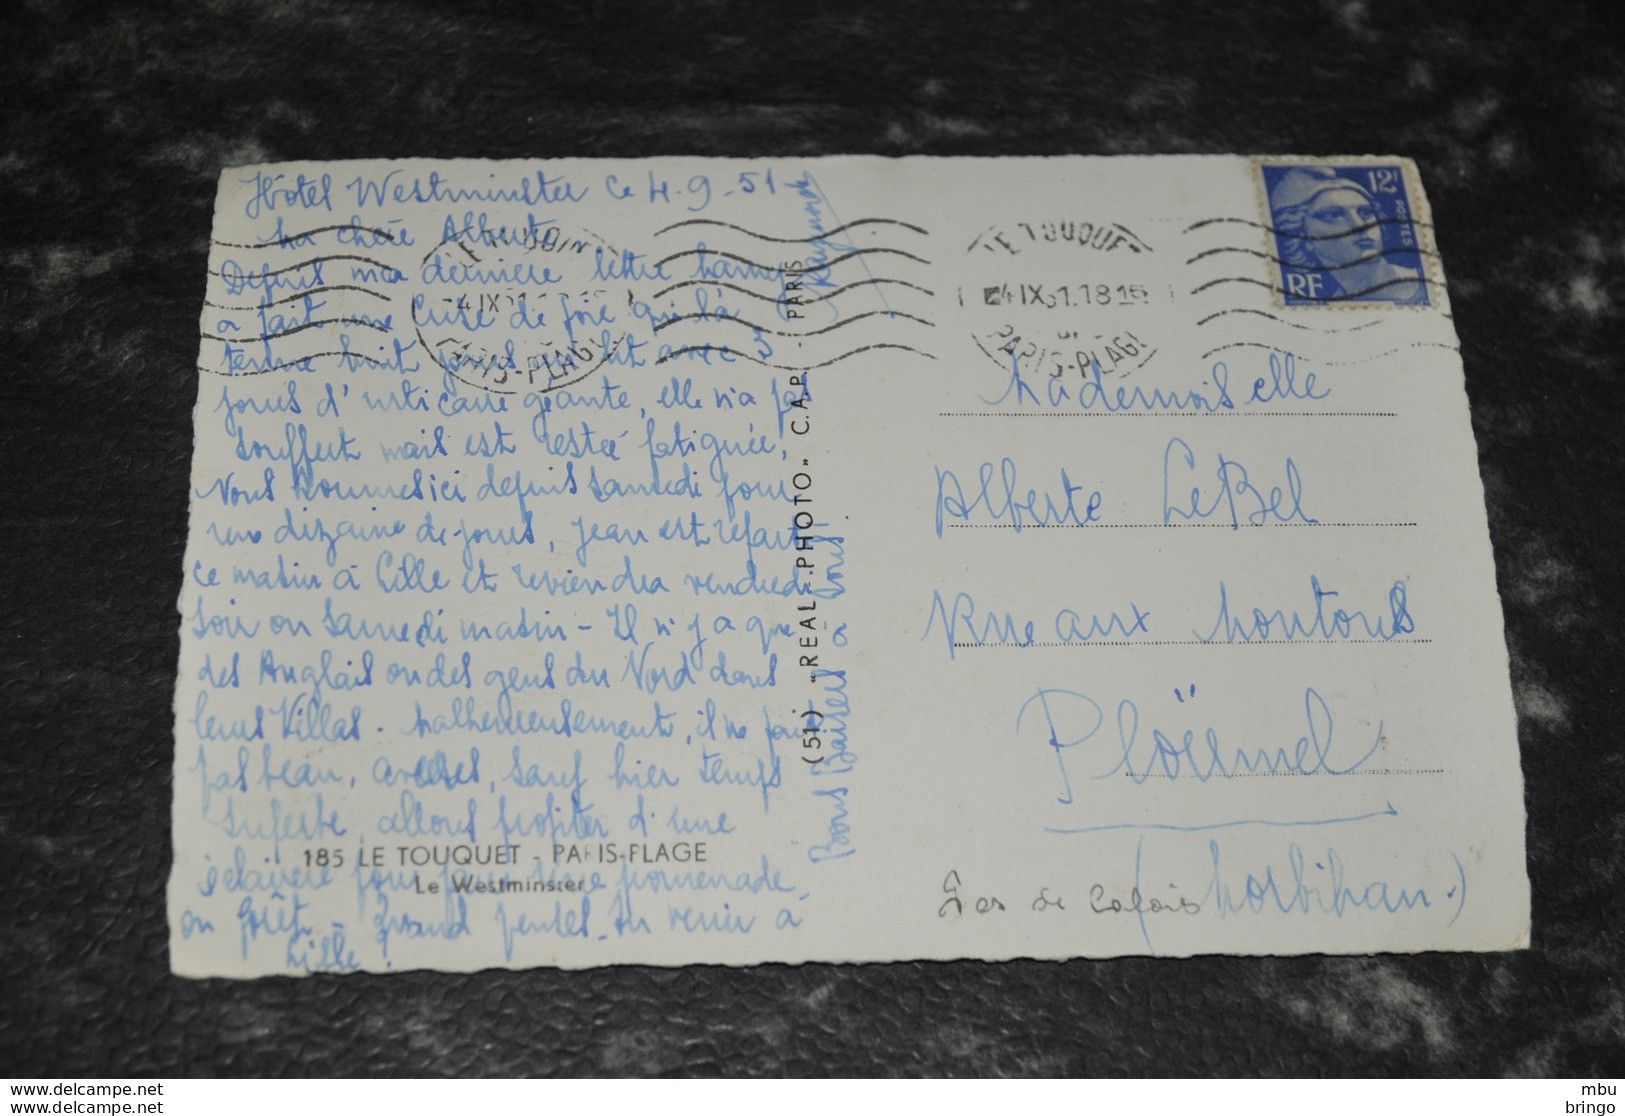 Hôtel Westminster Ce 4-9-51
Ma chère Alberte
Depuis ma dernière lettre
a fait une Crise de foie qui l'a
tenue huit jours au lit avec 3
jours d'urticaire géante, elle n'a pas
souffert mais est restée fatiguée,
Nous sommes ici depuis samedi pour
une dizaine de jours, Jean est reparti
ce matin à Lille et reviendra vendredi
soir ou samedi matin - Il n'y a que
des Anglais ou des gens du Nord dans
leurs Villas - Malheureusement, il ne fait
pas beau, averses, sauf hier temps
superbe, allons profiter d'une
éclaircie pour faire une promenade
en forêt - Quand penses-tu venir à
Lille?
Bons Baisers à tous
185 LE TOUQUET - PARIS-PLAGE
Le Westminster
(51) "REAL-PHOTO" C.A.P. - PARIS
LE TOUQUET
4 IX 51
PARIS-PLAGE
LE TOUQUET
4 IX 51 18 15
PARIS-PLAGE
12F
POSTES
RF
Mademoiselle
Alberte LeBel
Rue aux Moutons
Ploërmel
(Morbihan.)
Pas de Calais
delcampe.net
delcampe.net
mbu
bringo